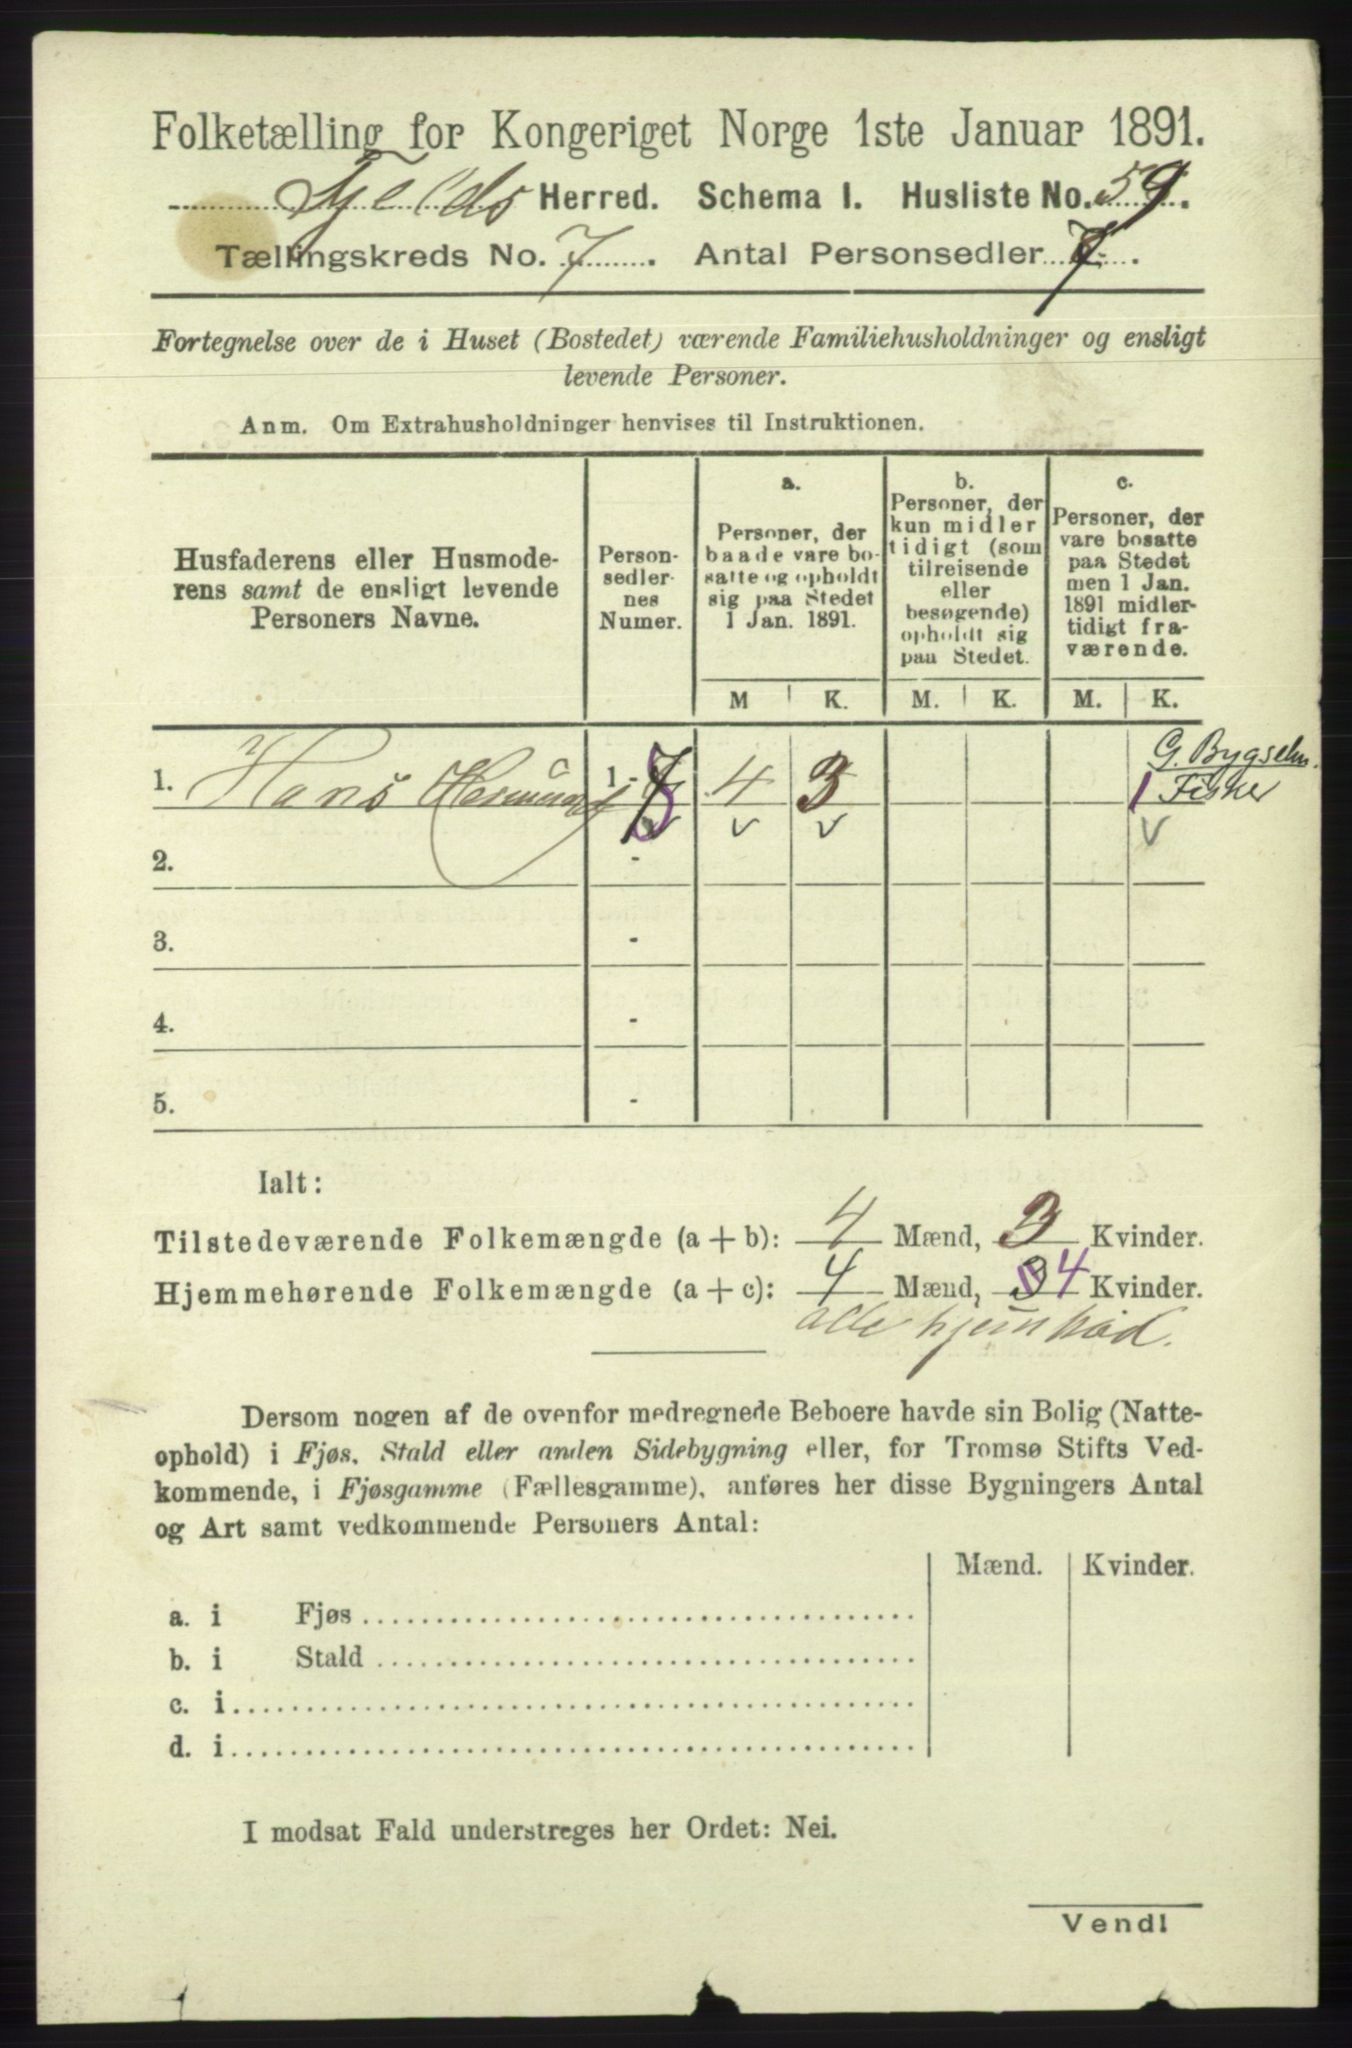 Folketælling for Kongeriget Norge 1ste Januar 1891.
Herred. Schema I. Husliste No. 59.
Tællingskreds No. 7. Antal Personsedler 7.
Fortegnelse over de i Huset (Bostedet) værende Familiehusholdninger og ensligt
levende Personer.
Anm. Om Extrahusholdninger henvises til Instruktionen.
Husfaderens eller Husmode-
rens samt de ensligt levende
Personers Navne.
Person-
sedler-
nes
Numer.
a.
Personer, der
baade vare bo-
satte og opholdt
sig paa Stedet
1 Jan. 1891.
b.
Personer, der
kun midler
tidigt (som
tilreisende
eller
besøgende)
opholdt sig
paa Stedet.
c.
Personer, der
vare bosatte
paa Stedet
men 1 Jan.
1891 midler-
tidigt fra-
værende.
M K. M. K. M. K.
G. Bygselm.
1. Hans 1 - 4 3 1 Fisker
2. -
3. -
4. -
5. -
Ialt:
Tilstedeværende Folkemængde (a + b): 4 Mænd, 3 Kvinder.
Hjemmehørende Folkemængde (a + c): 4 Mænd, 3 4 Kvinder.
alle hjem
Dersom nogen af de ovenfor medregnede Beboere havde sin Bolig (Natte-
ophold) i Fjøs, Stald eller anden Sidebygning eller, for Tromsø Stifts Ved-
kommende, i Fjøsgamme (Fællesgamme), anføres her disse Bygningers Antal
og Art samt vedkommende Personers Antal:
Mænd. Kvinder.
a. i Fjøs
b. i Stald
c. i
d. i
I modsat Fald understreges her Ordet: Nei.
Vend!